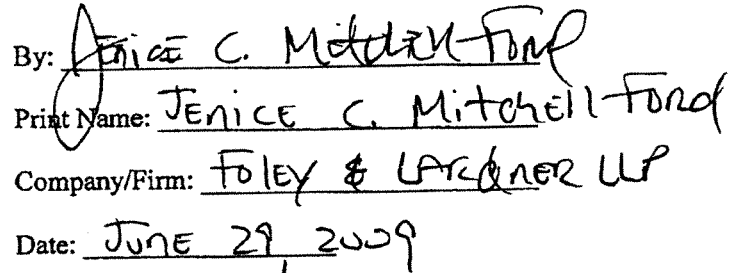 By: Jenice C. Mitchell Ford
Print Name: JEnicE C. MitchEll Ford
Company/Firm: FolEy & LArdnER LLP
Date: JunE 29, 2009